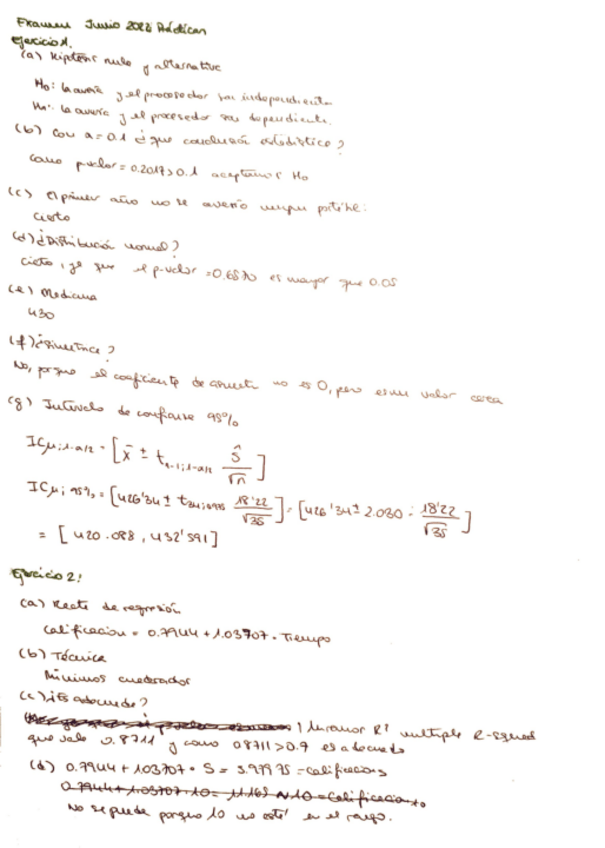 Examen Junio 2022 Prácticas
Ejercicio 1.
(a) Hipótesis nula y alternativa
H₀: la avería y el procesador son independientes
H₁: la avería y el procesador son dependientes.
(b) Con α=0.1 ¿que conclusión estadística?
como p-valor=0.2017>0.1 aceptamos H₀
(c) El primer año no se averió ningún portátil:
Cierto
(d) ¿Distribución normal?
cierto, ya que el p-valor =0.6570 es mayor que 0.05
(e) Mediana
430
(f) ¿Simétrica?
No, porque el coeficiente de asimetría no es 0, pero es un valor cerca
(g) Intervalo de confianza 95%
ICμ;1-α/2 = [x̄ ± t n-1;1-α/2 ŝ/√n]
ICμ;95% = [426'34 ± t34;0.975 18'22/√35] = [426'34 ± 2.030 · 18'22/√35]
= [420.088, 432'591]
Ejercicio 2:
(a) Recta de regresión
Calificacion = 0.7944 + 1.03707 · Tiempo
(b) Técnica
Mínimos cuadrados
(c) ¿Es adecuada?
Miramos R² multiple R-squared
que vale 0.8711 y como 0.8711>0.7 es adecuado
(d) 0.7944 + 1.03707 · 5 = 5.97975 = calificaciones
0.7944 + 1.03707 · 10 = 11.165 ≈ 10 = Calificaciones
No se puede porque 10 no está en el rango.